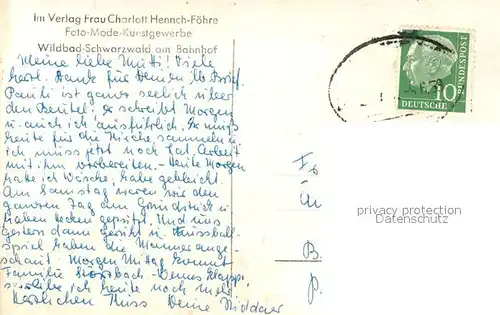 Im Verlag Frau Charlott Hennch-Föhre
Foto-Mode-Kunstgewerbe
Wildbad-Schwarzwald am Bahnhof
Meine liebe Mutti! Viele
herzl. Dank für Deinen lb. Brief.
Pauli ist ganz seelich über
den Beutel: er schreibt Morgen
u. auch ich ausführlich. Er muß
heute für die Kirche sammeln u.
ich muss jetzt noch Lat. Arbeit
mit ihm vorbereiten. - Heute Morgen
hatte ich Wäsche, habe gebleicht.
Am Samstag waren wir den
ganzen Tag am Grundstück u.
haben Hecken gespritzt. Und uns
gestern dann geruht u. Fussball-
spiel haben die Männer ange-
schaut. Morgen Mittag kommt
Familie
schreibe ich heute noch mehr
Herzlichen Kuss Deine
10
DEUTSCHE
BUNDESPOST
Fr
An
B.
P.
privacy protection
Datenschutz